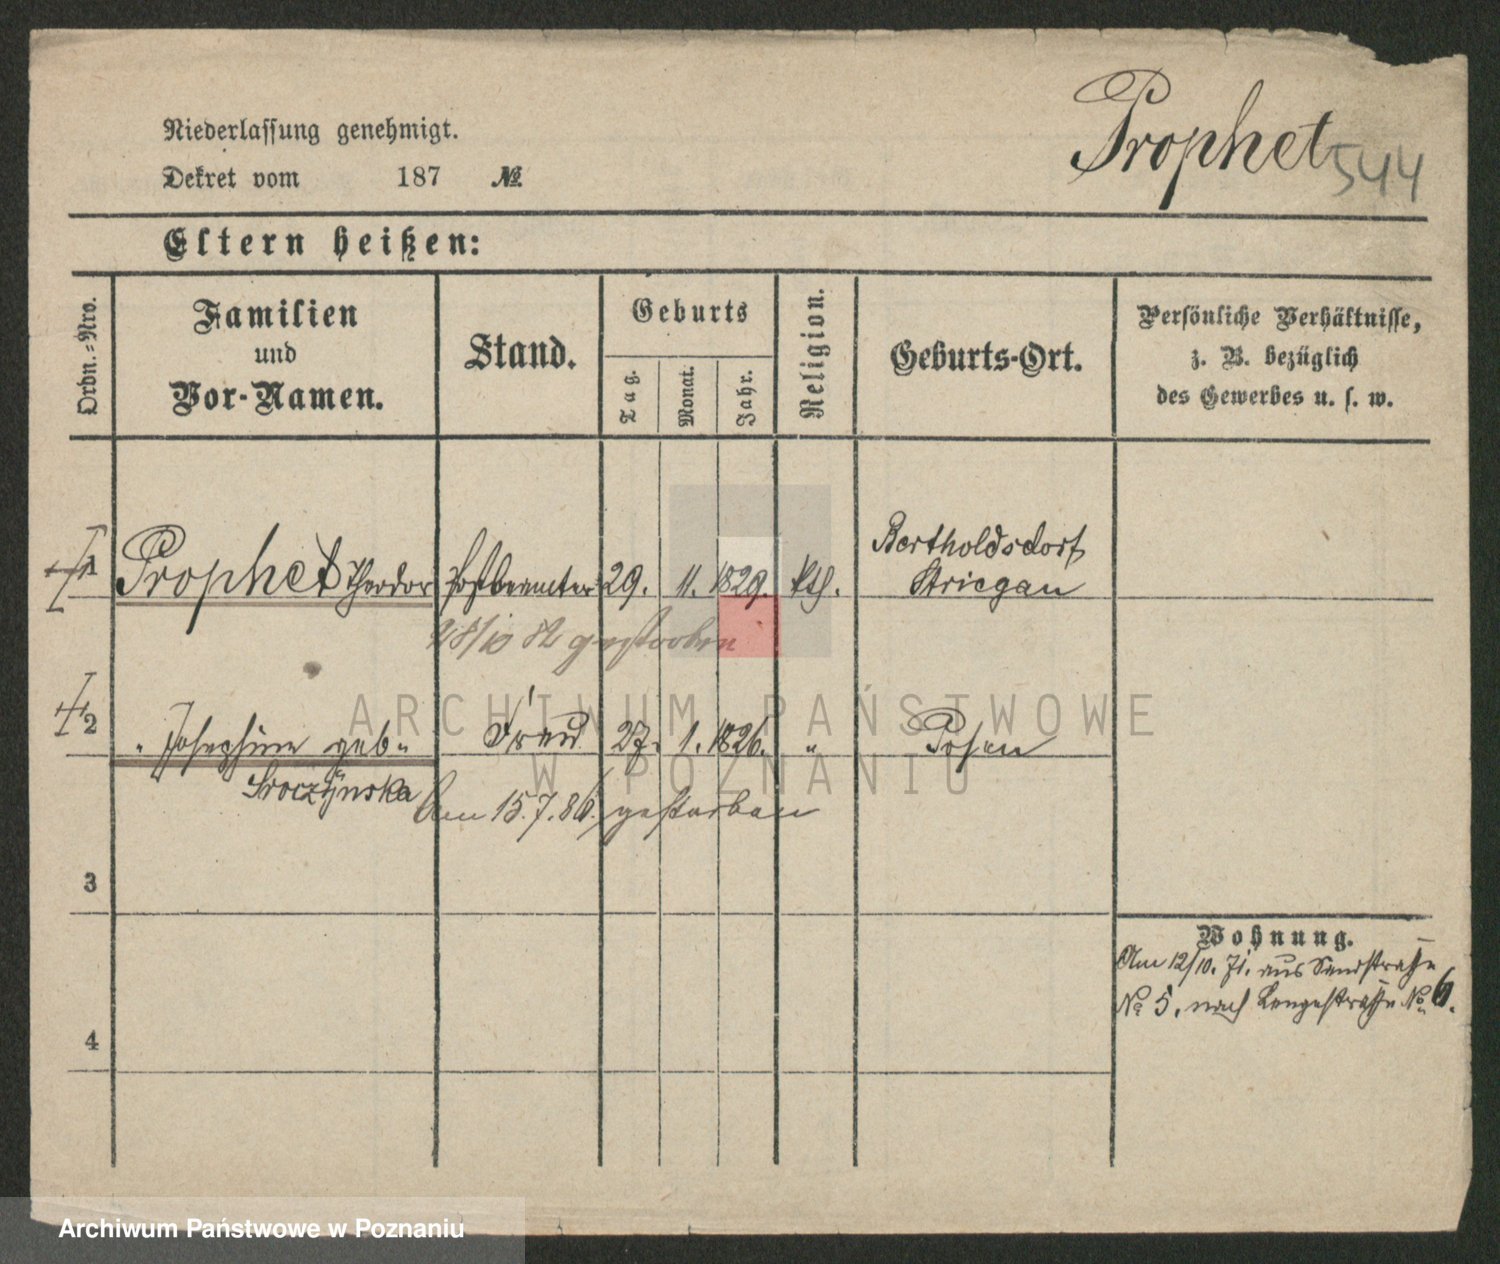 Prophet
544
Niederlassung genehmigt.
Dekret vom 187 No.
Eltern heißen:
Ordn.-Nro.
Familien und Vor-Namen.
Stand.
Geburts
Tag.
Monat.
Jahr.
Religion.
Geburts-Ort.
Persönliche Verhältnisse,
z. B. bezüglich
des Gewerbes u. s. w.
Bertholdsdorf
1 Prophet Theodor Postbeamter 29. 11. 1829. kth. Striegau
28/10 82 gestorben
2 " Josephine geb. Frau 27. 1. 1826. " Posen
Sroczynska
Am 15.7.86. gestorben
3
4
Wohnung.
Am 12/10. 71. aus Sandstraße
No 5. nach Langestraße No 6.
ARCHIWUM PAŃSTWOWE
W POZNANIU
Archiwum Państwowe w Poznaniu